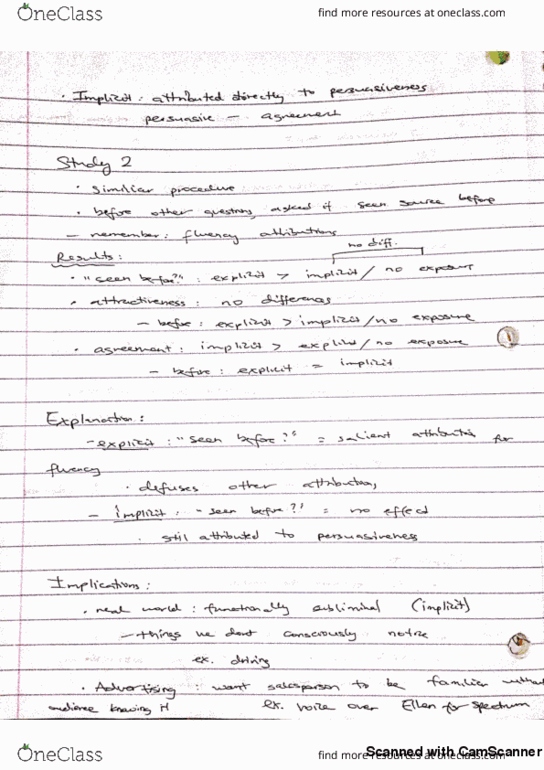 OneClass
find more resources at oneclass.com
· Implicit : attributed directly to persuasiveness
persuasive — agreement
Study 2
· similiar procedure
· before other questions, asked if seen source before
— remember : fluency attributions
no diff.
Results :
· "seen before?" : explicit > implicit / no exposure
· attractiveness : no difference
— before : explicit > implicit / no exposure
· agreement : implicit > explicit / no exposure
— before : explicit = implicit
Explanation :
- explicit : "seen before?" = salient attribution for
fluency
· defuses other attributions
— implicit : "seen before?" = no effect
· still attributed to persuasiveness
Implications :
· real world : functionally subliminal (implicit)
— things we dont consciously notice
ex. driving
· Advertising : want salesperson to be familiar without
audience knowing it ex. voice over Ellen for Spectrum
OneClass
find more resources at oneclass.com
Scanned with CamScanner